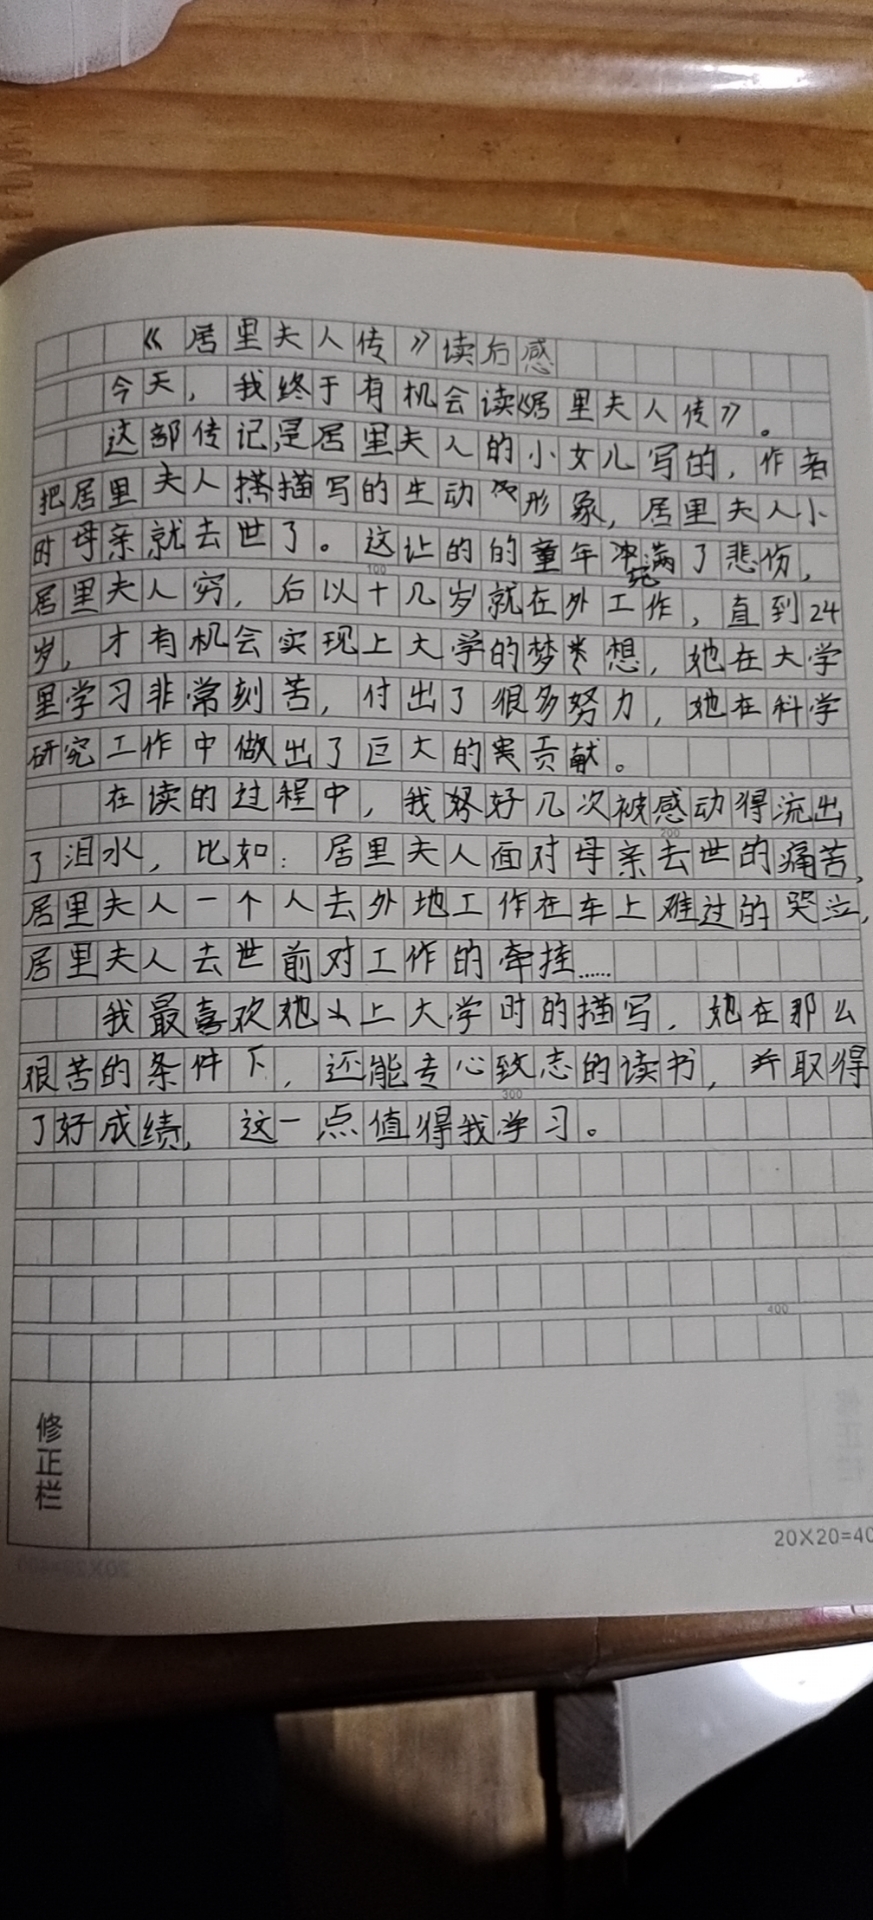 《居里夫人传》读后感
今天，我终于有机会读《居里夫人传》。
这部传记是居里夫人的小女儿写的，作者
把居里夫人描写的生动形象，居里夫人小
时母亲就去世了。这让的的童年充满了悲伤，
100
居里夫人穷，后以十几岁就在外工作，直到24
岁，才有机会实现上大学的梦想，她在大学
里学习非常刻苦，付出了很多努力，她在科学
研究工作中做出了巨大的贡献。
在读的过程中，我好几次被感动得流出
200
了泪水，比如：居里夫人面对母亲去世的痛苦，
居里夫人一个人去外地工作在车上难过的哭泣，
居里夫人去世前对工作的牵挂……
我最喜欢她上大学时的描写，她在那么
艰苦的条件下，还能专心致志的读书，并取得
300
了好成绩，这一点值得我学习。
400
修正栏
20×20=40